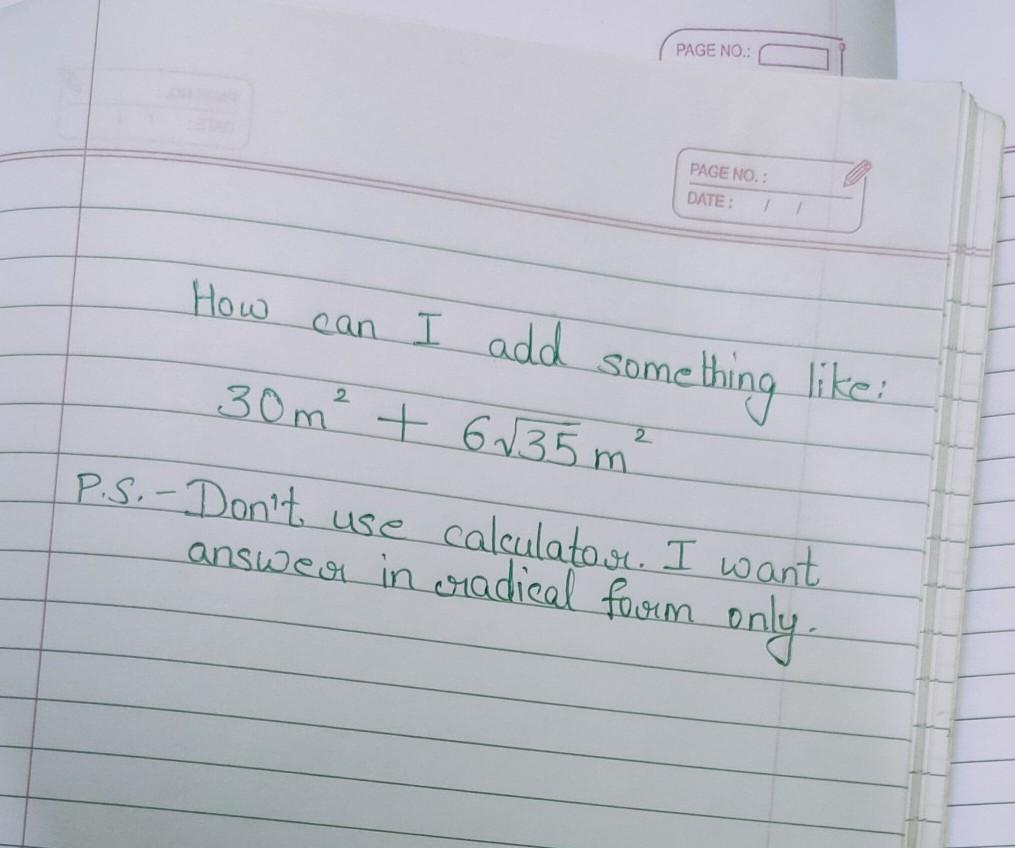 PAGE NO.:
PAGE NO. :
DATE : / /
How can I add something like:
30m² + 6√35 m²
P.S.- Don't use calculator. I want
answer in radical form only.